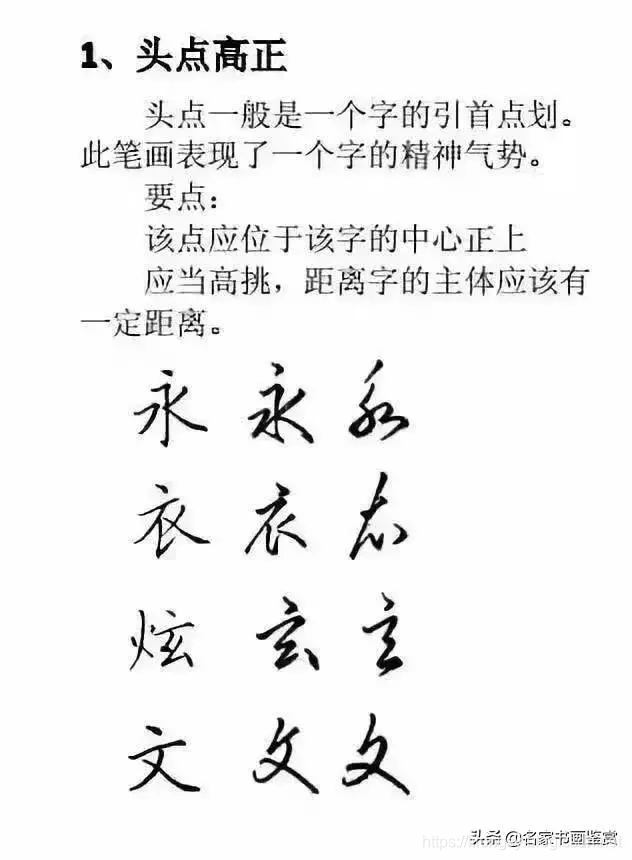 1、头点高正
头点一般是一个字的引首点划。
此笔画表现了一个字的精神气势。
要点：
该点应位于该字的中心正上
应当高挑，距离字的主体应该有
一定距离。
永 永 永
衣 衣 衣
炫 玄 玄
文 文 文
头条 @名家书画鉴赏